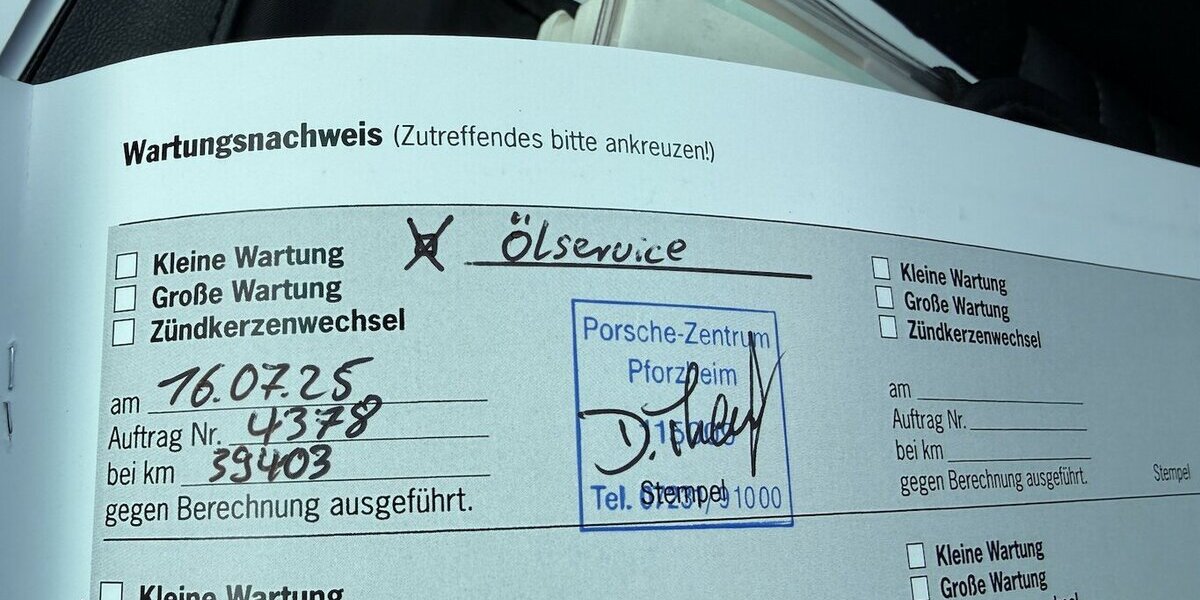 Wartungsnachweis (Zutreffendes bitte ankreuzen!)
Kleine Wartung
Große Wartung
Zündkerzenwechsel
Ölservice
am 16.07.25
Auftrag Nr. 4378
bei km 39403
gegen Berechnung ausgeführt.
Porsche-Zentrum
Pforzheim
Tel.
Stempel
Kleine Wartung
Große Wartung
Zündkerzenwechsel
am
Auftrag Nr.
bei km
gegen Berechnung ausgeführt.
Stempel
Kleine Wartung
Kleine Wartung
Große Wartung